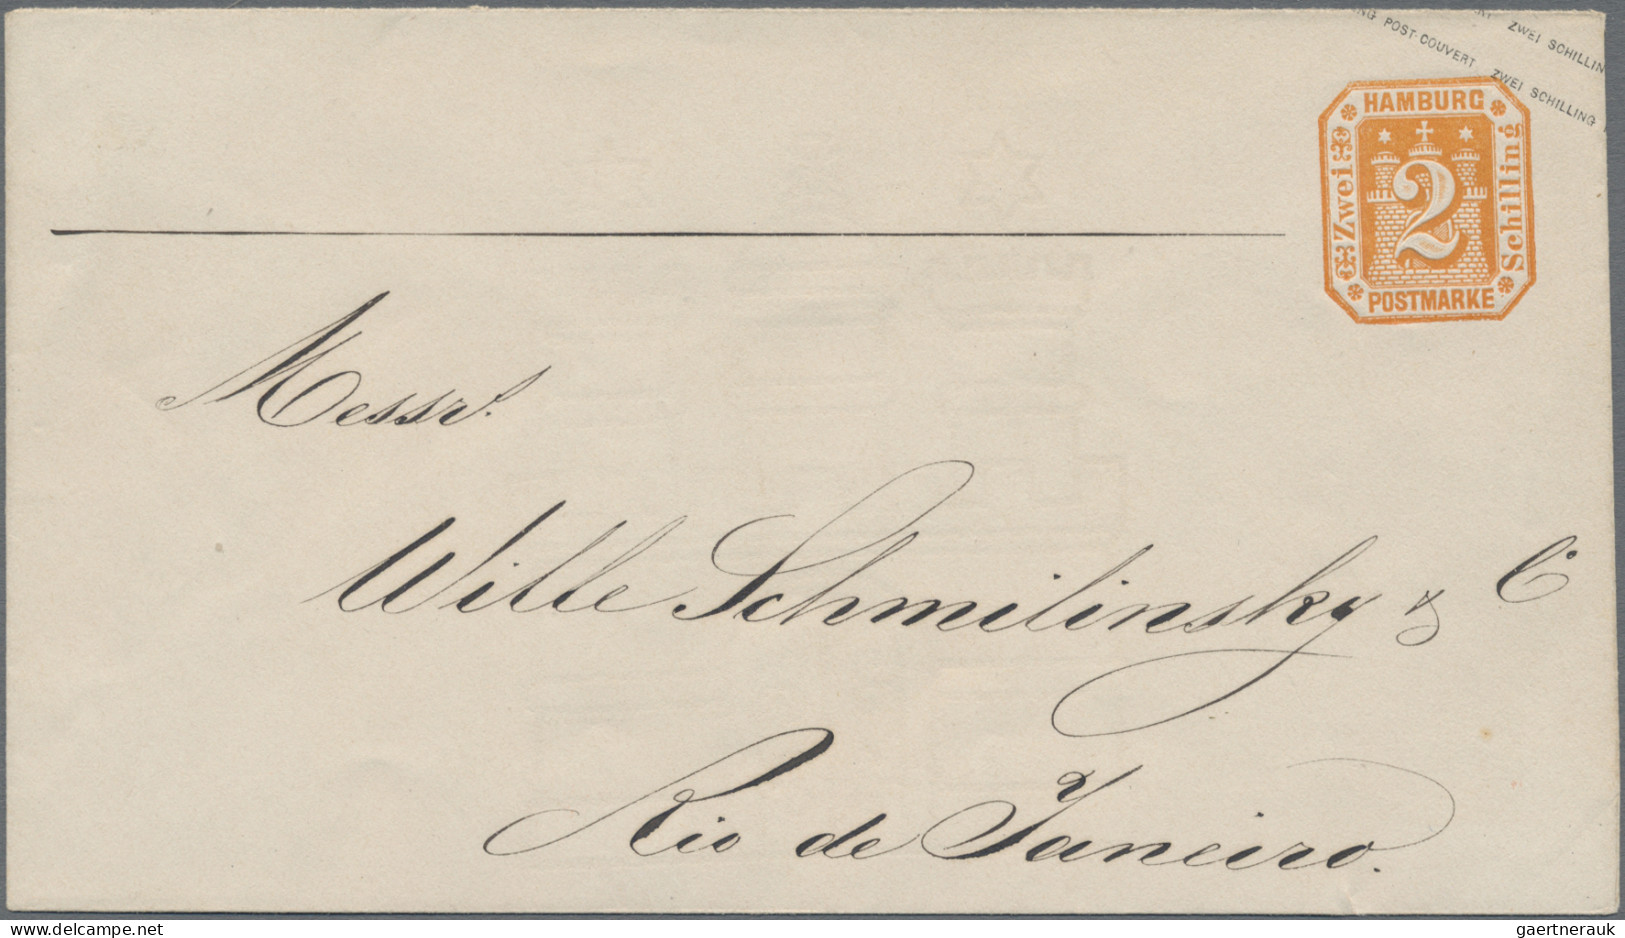 NG POST-COUVERT ZWEI SCHILLING
ZWEI SCHILLIN
HAMBURG
Zwei
2
Schilling
POSTMARKE
Messrs.
Wille Schmilinsky & Co
Rio de Janeiro.
delcampe.net
gaertnerauk